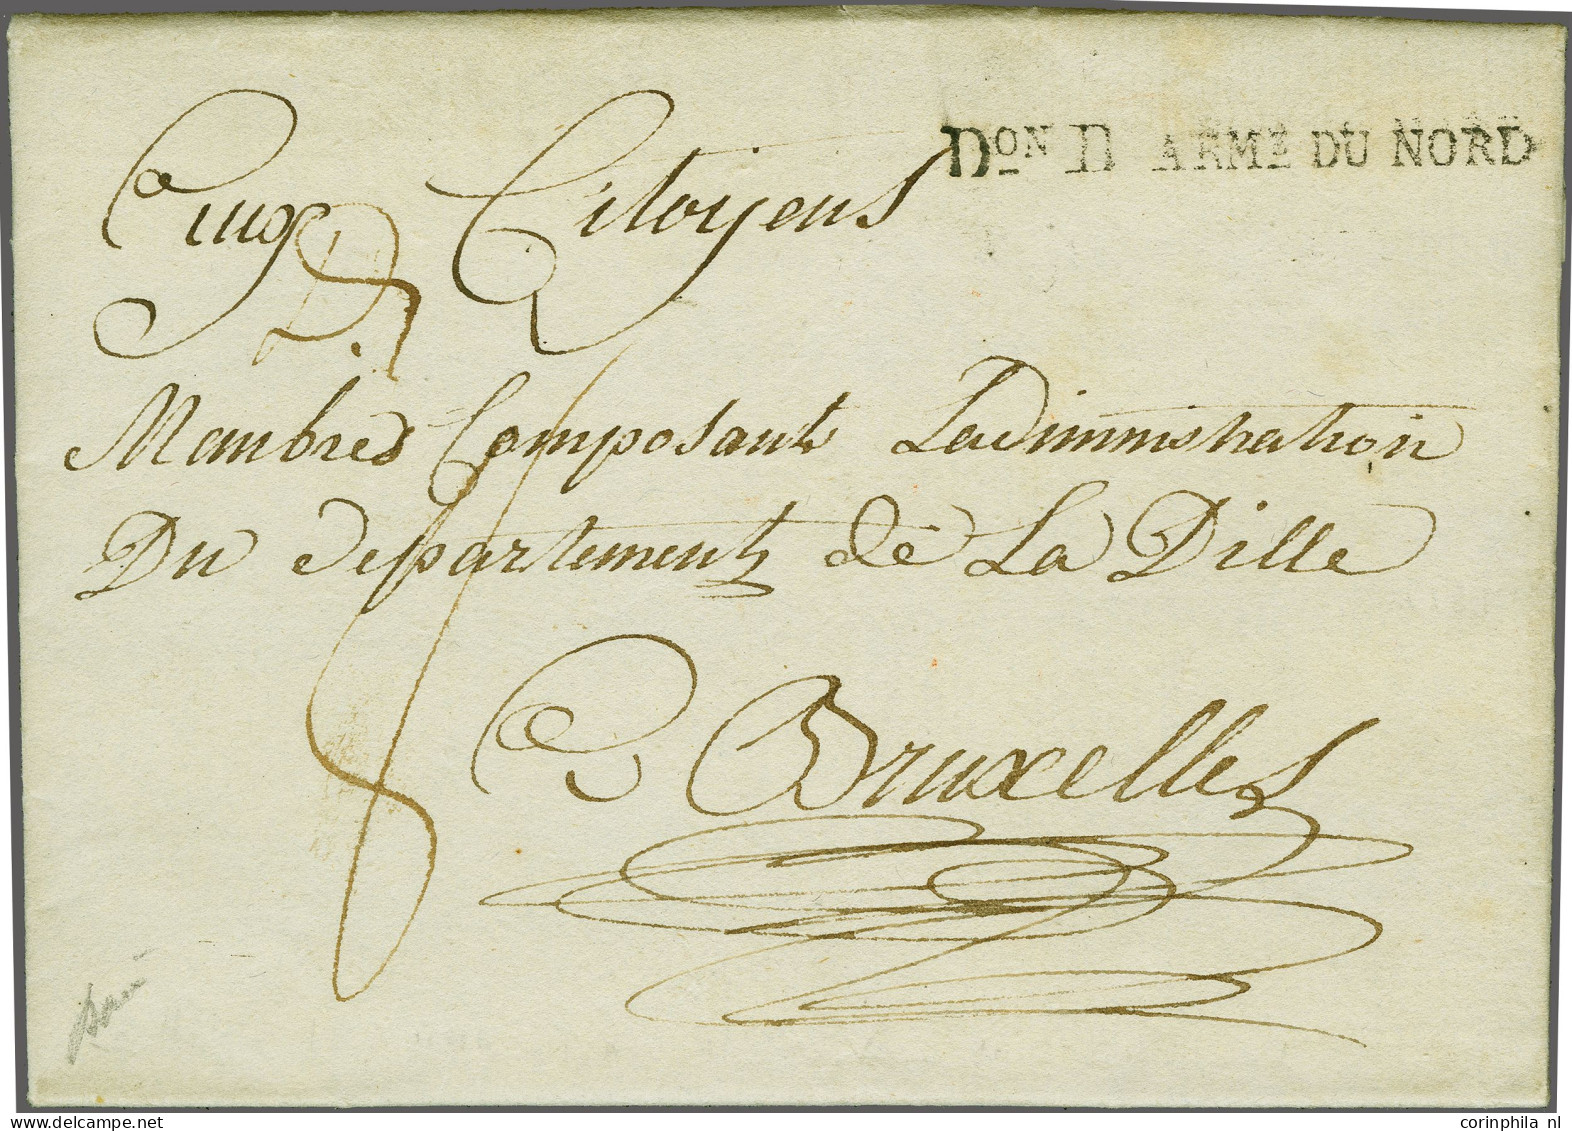 DON D ARMÉ DU NORD
Aux Citoyens
Manbres Composants Ladiministration
Du departements de La Dille
a Bruxelles
corinphila nl